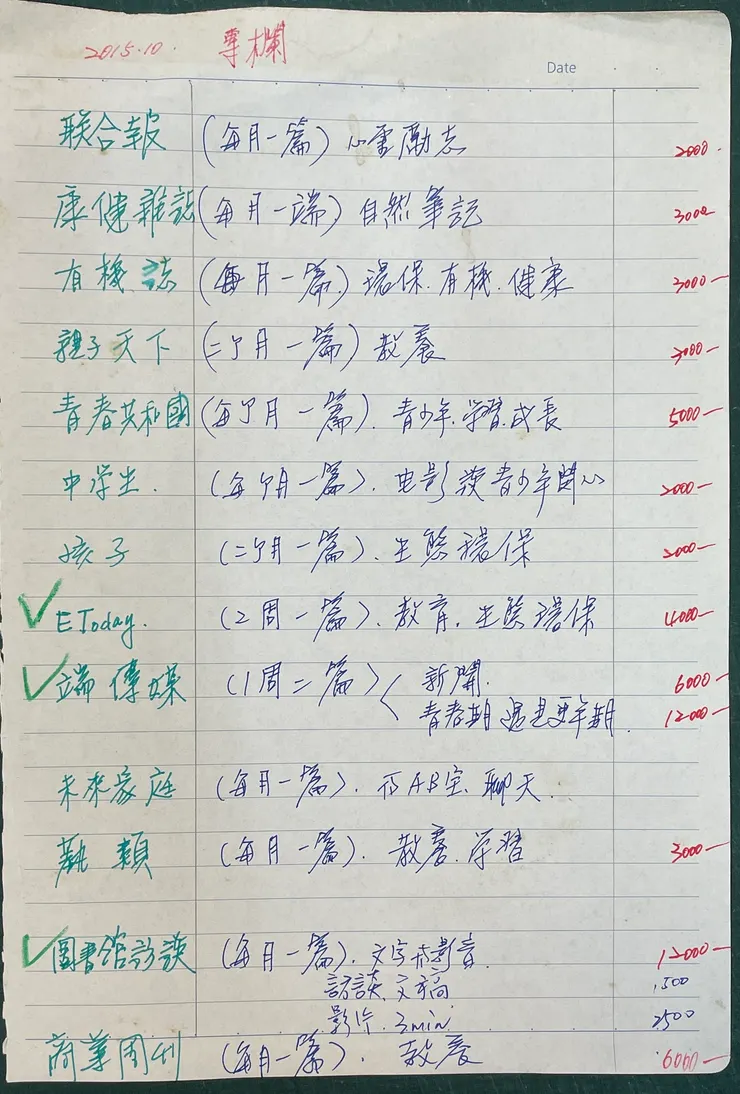 2015.10. 專欄
Date
联合報 (每月一篇) 心靈勵志 2000-
康健雜誌 (每月一端) 自然筆記 3000
有機誌 (每月一篇) 環保.有機.健康 3000-
親子天下 (二个月一篇) 教養 3000-
青春共和國 (每个月一篇). 青少年.學習.成長 5000-
中学生. (每个月一篇). 电影 青少年開心 2000-
孩子 (二个月一篇). 生態環保 2000-
EToday. (2周一篇). 教育. 生態環保 4000-
端傳媒 (1周二篇) 新聞. 6000-
青春期遇見更年期. 12000-
未來家庭 (每月一篇). AB 聊天.
(每月一篇). 教養.学習 3000-
圖書館訪談 (每月一篇). 文字 影音 12000-
訪談.文稿 1500
影片.3min 2500
商業周刊 (每月一篇). 教養 6000-